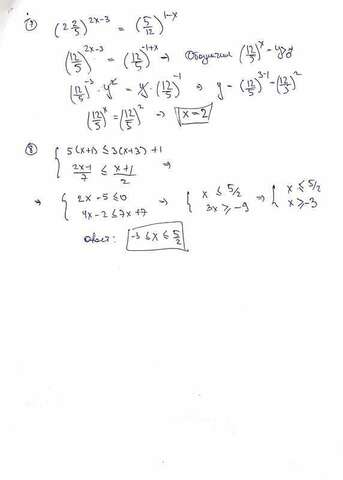 7) (2 2/5)^{2x-3} = (5/12)^{1-x}
(12/5)^{2x-3} = (12/5)^{-1+x} → Обозначим (12/5)^x = y
(12/5)^{-3} · y^2 = y · (12/5)^{-1} → y = (12/5)^{3-1} = (12/5)^2
(12/5)^x = (12/5)^2 → x = 2
8) { 5(x+1) ≤ 3(x+3) + 1
(2x-1)/7 ≤ (x+1)/2 ⇒
⇒ { 2x - 5 ≤ 0 ⇒ { x ≤ 5/2 ⇒ { x ≤ 5/2
4x - 2 ≤ 7x + 7 3x ≥ -9 x ≥ -3
Ответ: -3 ≤ x ≤ 5/2